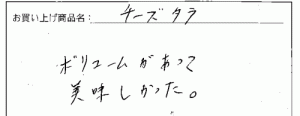 お買い上げ商品名： チーズタラ
ボリュームがあって
美味しかった。